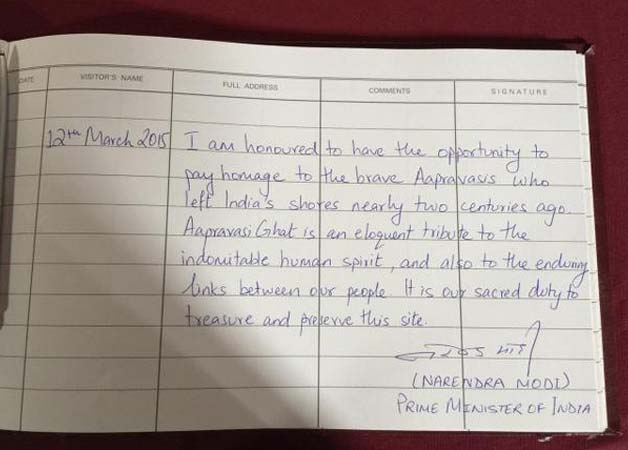 DATE VISITOR'S NAME FULL ADDRESS COMMENTS SIGNATURE
12th March 2015 I am honoured to have the opportunity to
pay homage to the brave Aapravasis who
left India's shores nearly two centuries ago.
Aapravasi Ghat is an eloquent tribute to the
indomitable human spirit, and also to the enduring
links between our people. It is our sacred duty to
treasure and preserve this site.
(NARENDRA MODI)
PRIME MINISTER OF INDIA